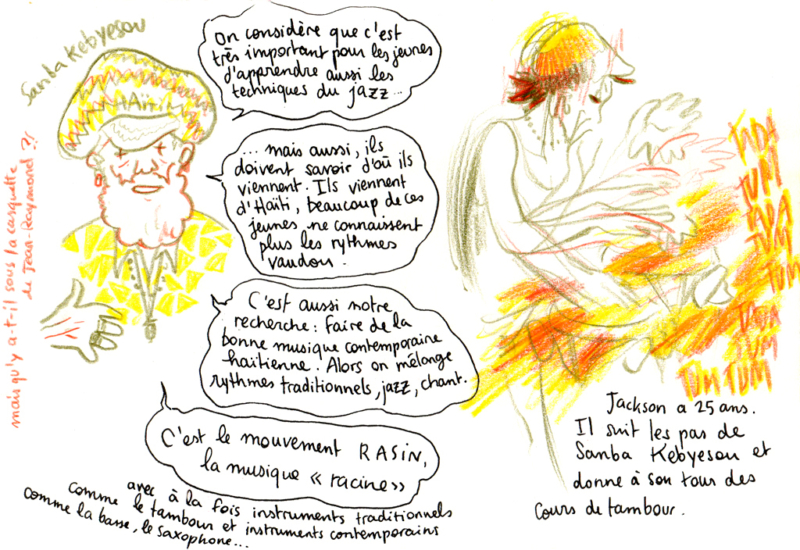 Sanba Kebyesou
HAÏTI
mais qu'y a-t-il sous la casquette
de Jean-Raymond ?!
On considère que c'est
très important pour les jeunes
d'apprendre aussi les
techniques du jazz...
... mais aussi, ils
doivent savoir d'où ils
viennent. Ils viennent
d'Haïti, beaucoup de ces
jeunes ne connaissent
plus les rythmes
vaudou.
C'est aussi notre
recherche : faire de la
bonne musique contemporaine
haïtienne. Alors on mélange
rythmes traditionnels, jazz, chant.
C'est le mouvement RASIN,
la musique « racine »
avec à la fois instruments traditionnels
comme le tambour et instruments contemporains
comme la basse, le saxophone...
TADA
TUM
TADA
TUM
TUM
TADA
TUM
TUM TUM
Jackson a 25 ans.
Il suit les pas de
Sanba Kebyesou et
donne à son tour des
cours de tambour.